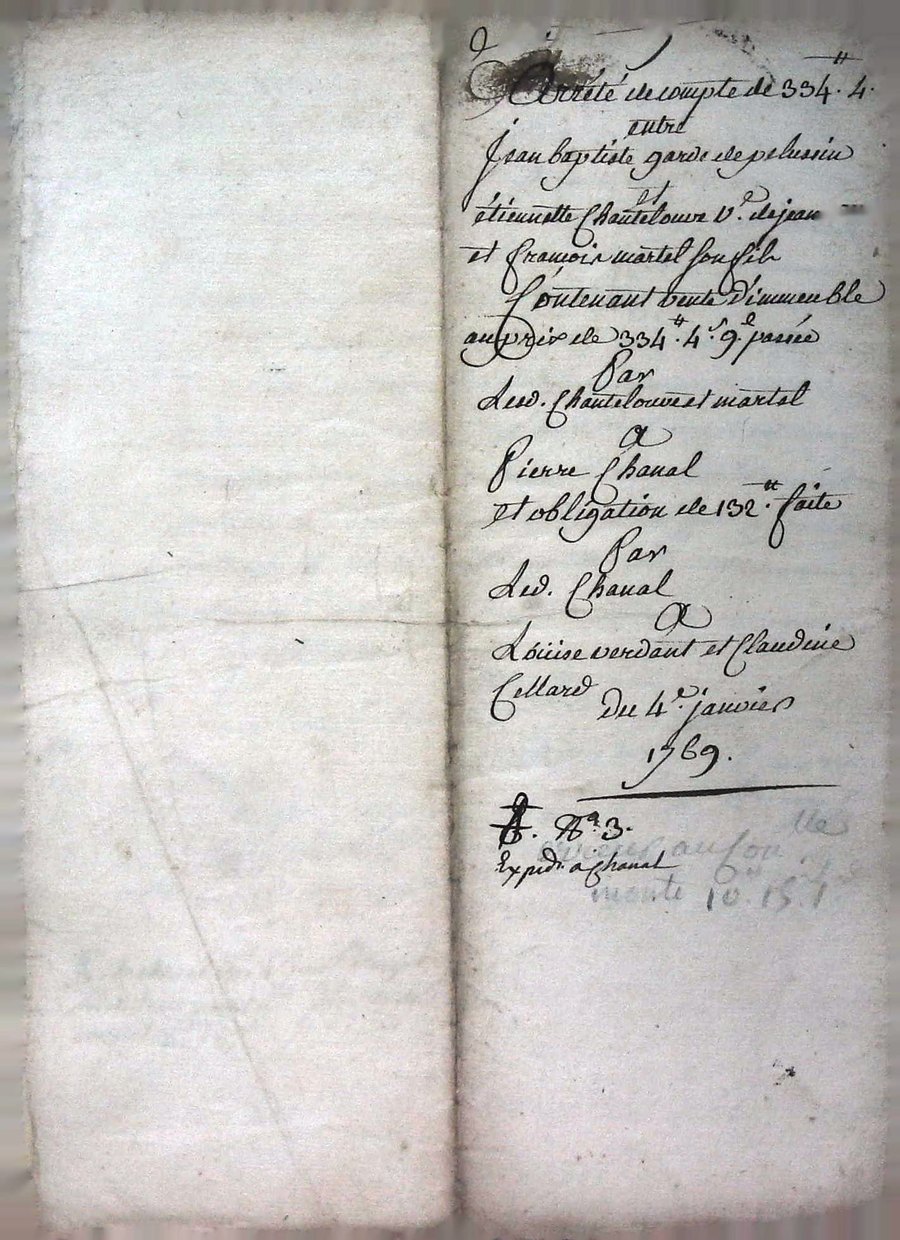 Arrêté de compte de 334.# 4.
entre
jean baptiste garde de pelussin
et
étiennette Chantelouve v.e de jean
et françois martel son fils
Contenant vente d'immeuble
au prix de 334.# 4.s 9.d passée
Par
Lesd. Chantelouve et martel
A
Pierre Chanal
et obligation de 132.# faite
Par
Led. Chanal
A
Louise verdant et Claudine
Cellard
du 4.e janvier
1769.
N.a 3.
Expedi. a Chanal
monte 10.